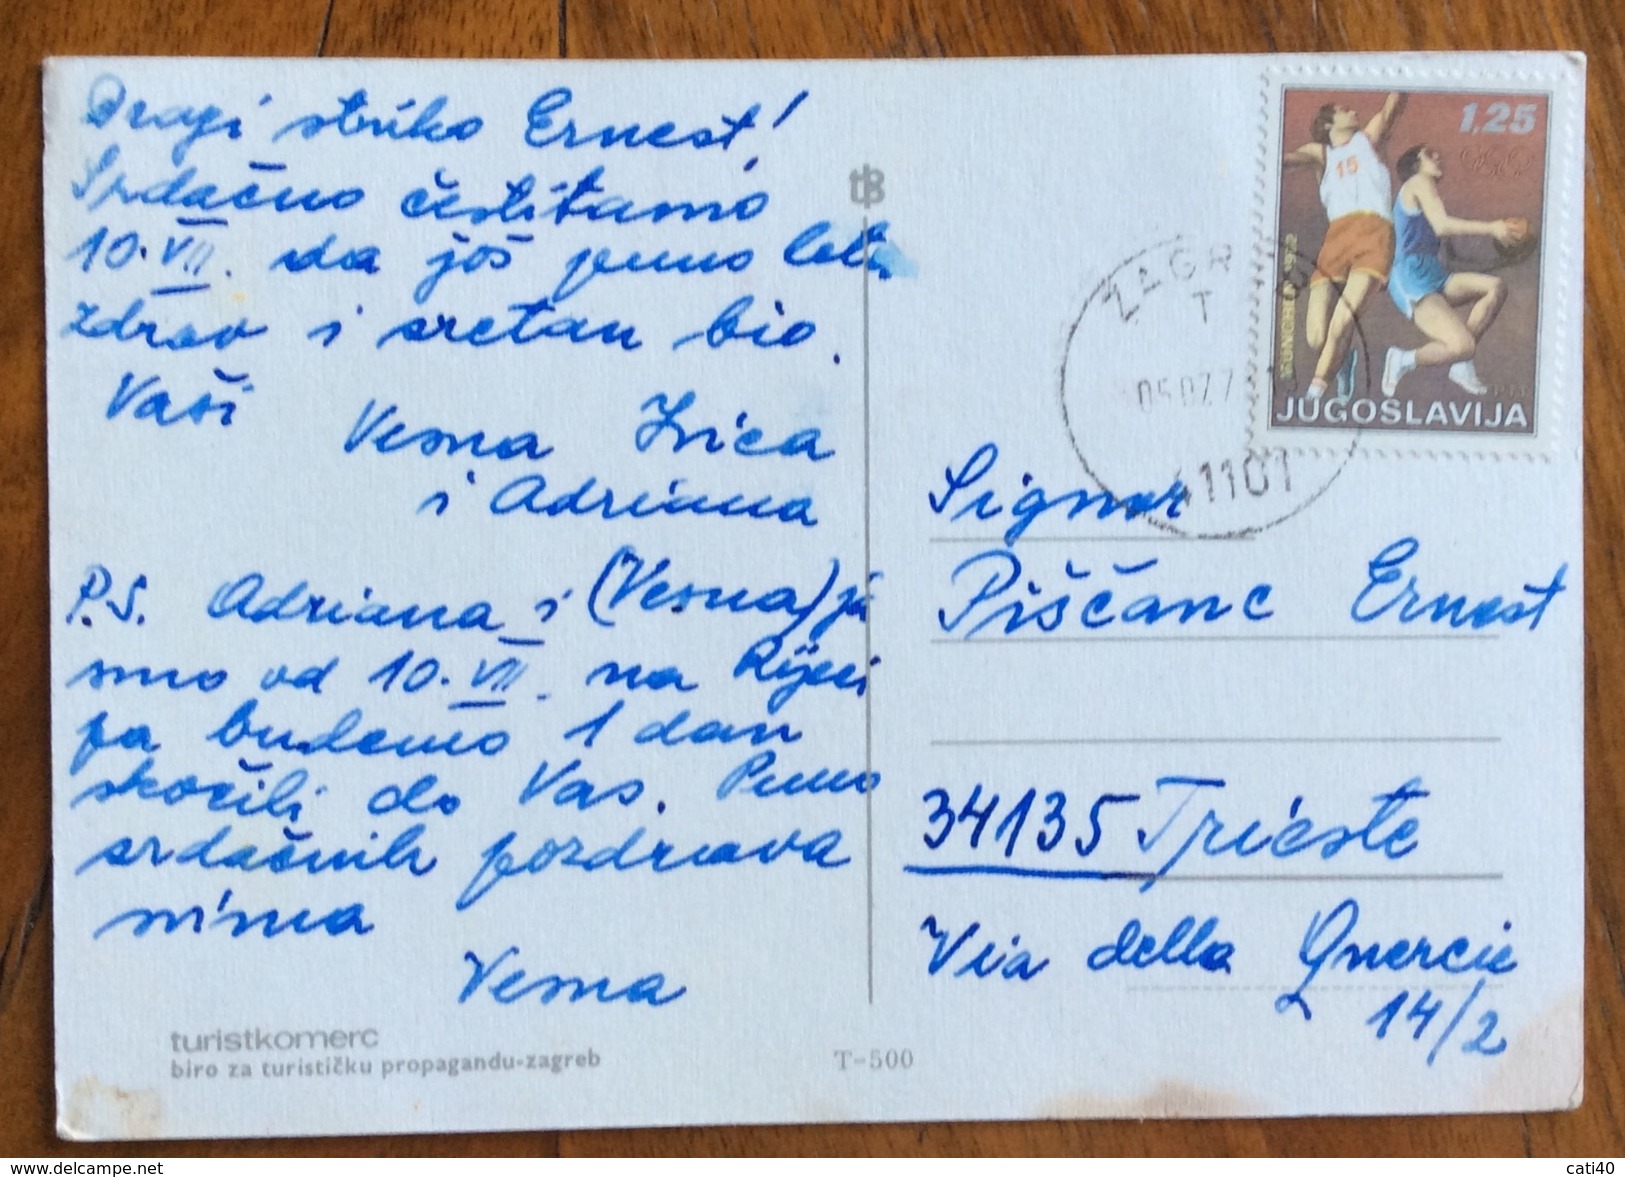 Dragi striko Ernest!
Srdačno čestitamo
10.VII. da još puno leta
zdrav i sretan bio.
Vaši
Vesna Ivica
i Adriana
P.S. Adriana i (Vesna) ja
smo od 10.VII. na Rijeci
pa budemo 1 dan
skočili do Vas. Puno
srdačnih pozdrava
svima
Vesna
turistkomerc
biro za turističku propagandu-zagreb
T-500
tB
1,25
15
MÜNCHEN 1972
JUGOSLAVIJA
ZAGR
T
05.07.7
41101
Signor
Piščanc Ernest
34135 Trieste
Via della Quercie
14/2
cati40